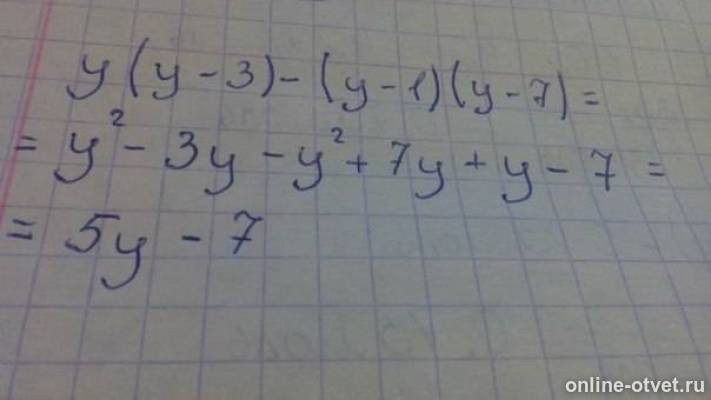 y(y-3)-(y-1)(y-7)=
= y²-3y-y²+7y+y-7=
= 5y-7
online-otvet.ru